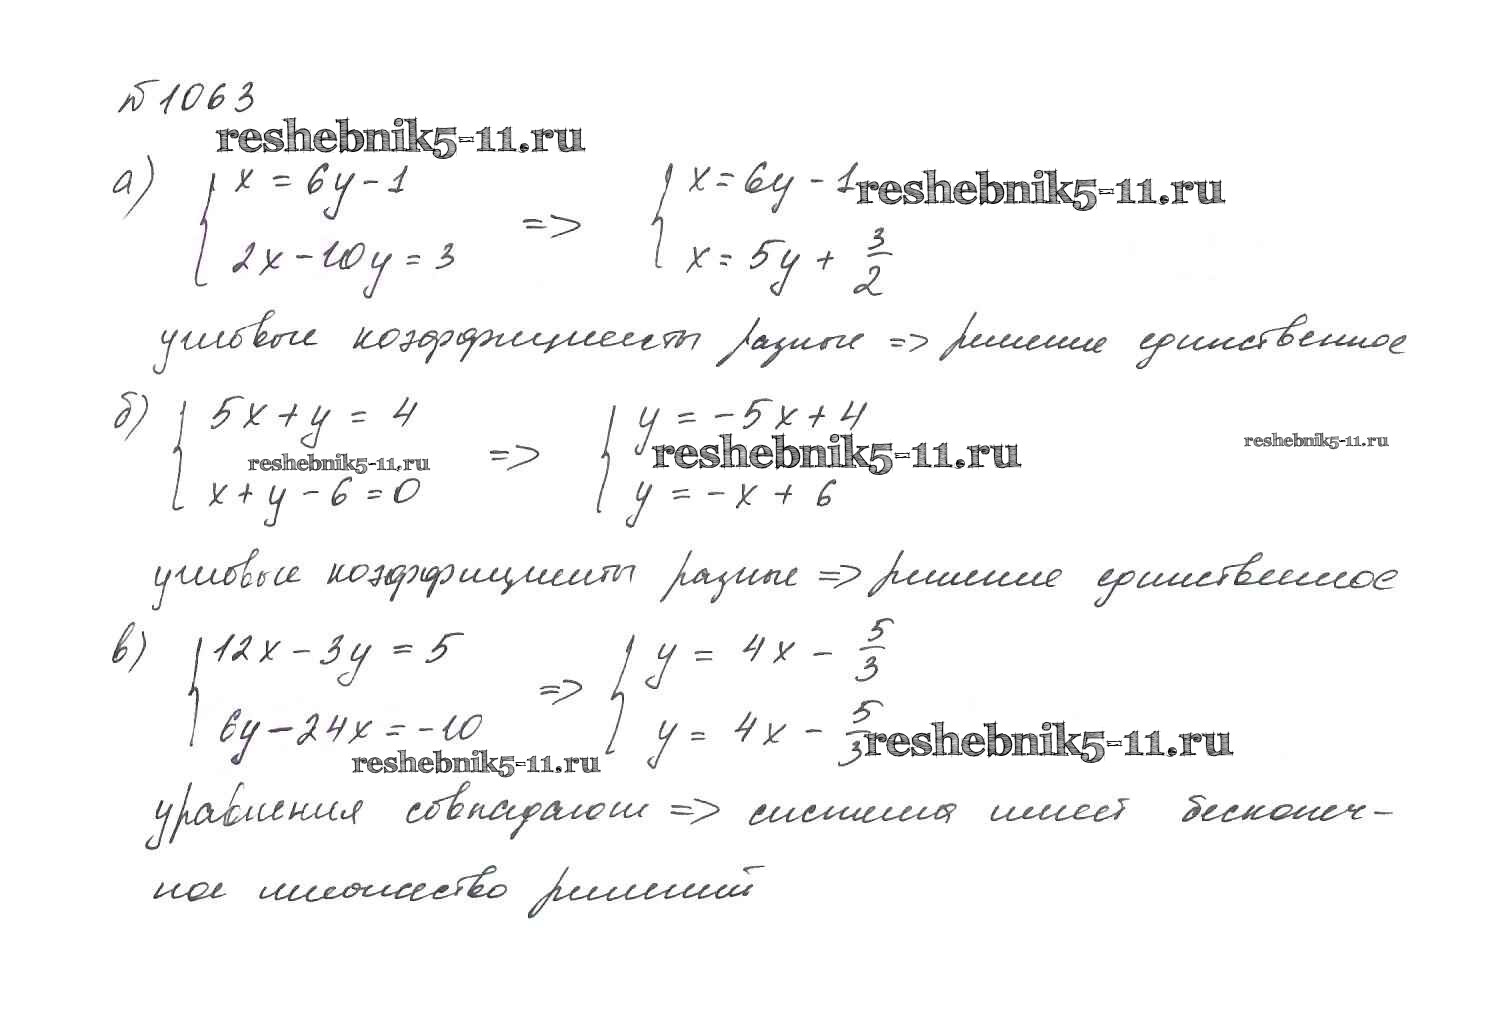 №1063
reshebnik5-11.ru
а) { x = 6y - 1 => { x = 6y - 1 reshebnik5-11.ru
2x - 10y = 3 x = 5y + 3/2
угловые коэффициенты разные => решение единственное
б) { 5x + y = 4 => { y = -5x + 4
reshebnik5-11.ru reshebnik5-11.ru reshebnik5-11.ru
x + y - 6 = 0 y = -x + 6
угловые коэффициенты разные => решение единственное
в) { 12x - 3y = 5 => { y = 4x - 5/3
6y - 24x = -10 y = 4x - 5/3 reshebnik5-11.ru
reshebnik5-11.ru
уравнения совпадают => система имеет бесконеч-
ное множество решений